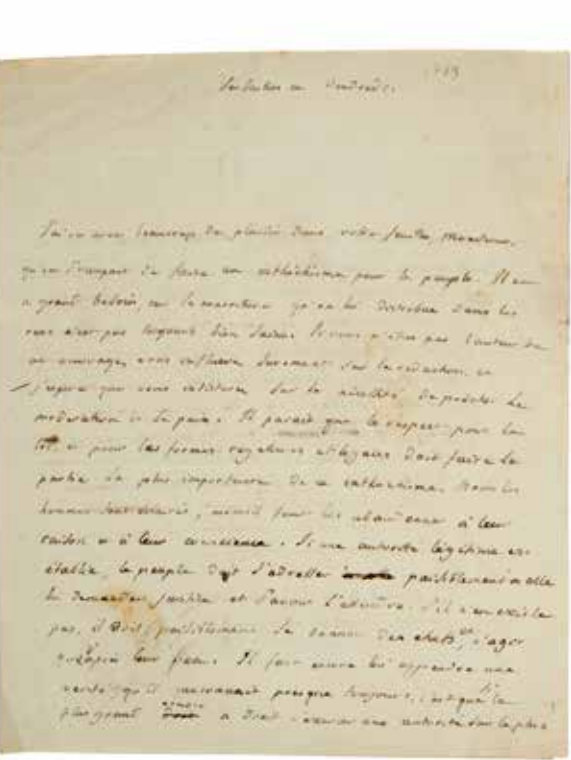 1789
Vendredi
J'ai vu avec beaucoup de plaisir dans votre feuille, Monsieur,
qu'on s'occupait de faire un cathéchisme pour le peuple. Il en
a grand besoin, car la nourriture qu'on lui distribue dans les
rues n'est pas toujours bien saine. Si vous n'êtes pas l'auteur de
cet ouvrage, vous influerez surement sur la rédaction, et
j'espère que vous insisterez sur la nécessité de prêcher la
modération et la paix. Il parait que le respect pour la
loi et pour les formes régulières et légales doit faire la
partie la plus importante de ce cathéchisme. Tous les
hommes sont
raison et à leur conscience. Si une autorité légitime est
établie, le peuple doit s'adresser paisiblement à elle
lui demander justice et s'avoir l'attendre. S'il n'en existe
pas, il doit paisiblement se donner des chefs, et n'agir
que d'après leur Il faut encore lui apprendre une
vérité qu'il méconnait presque toujours, c'est que le
plus grand nombre a droit autorité sur le plus